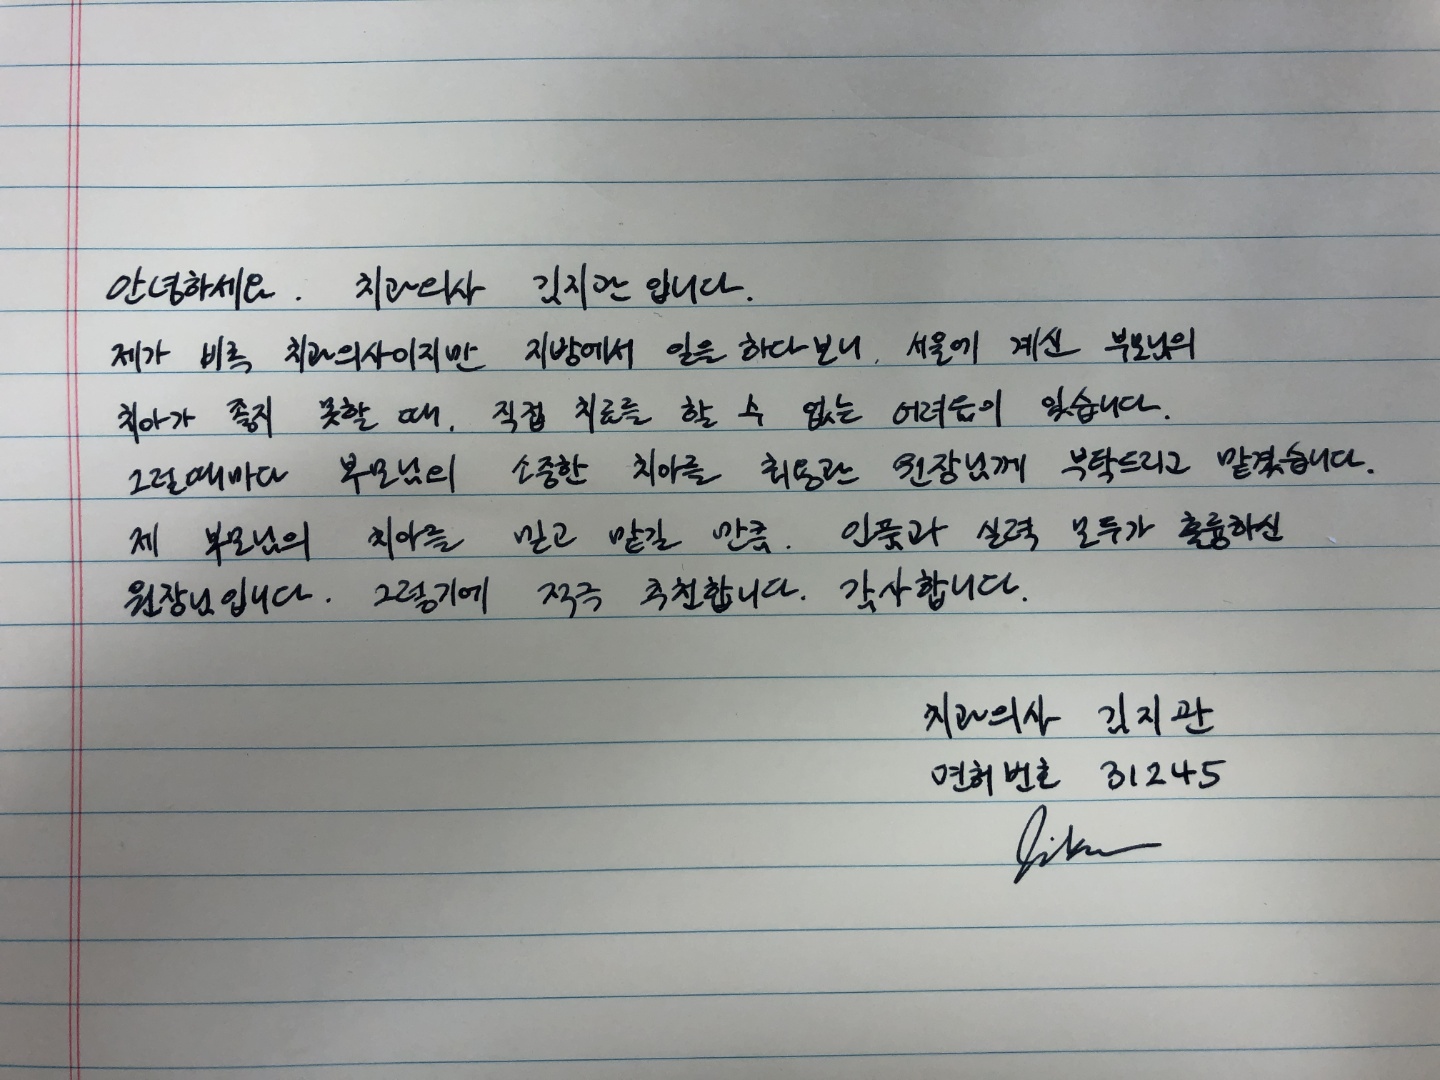 안녕하세요. 치과의사 김지관입니다.
제가 비록 치과의사이지만 지방에서 일을 하다보니, 서울에 계신 부모님의
치아가 좋지 못할 때, 직접 치료를 할 수 없는 어려움이 있습니다.
그럴때마다 부모님의 소중한 치아를 최용관 원장님께 부탁드리고 맡겼습니다.
제 부모님의 치아를 믿고 맡길 만큼, 인품과 실력 모두가 훌륭하신
원장님입니다. 그렇기에 적극 추천합니다. 감사합니다.
치과의사 김지관
면허번호 31245